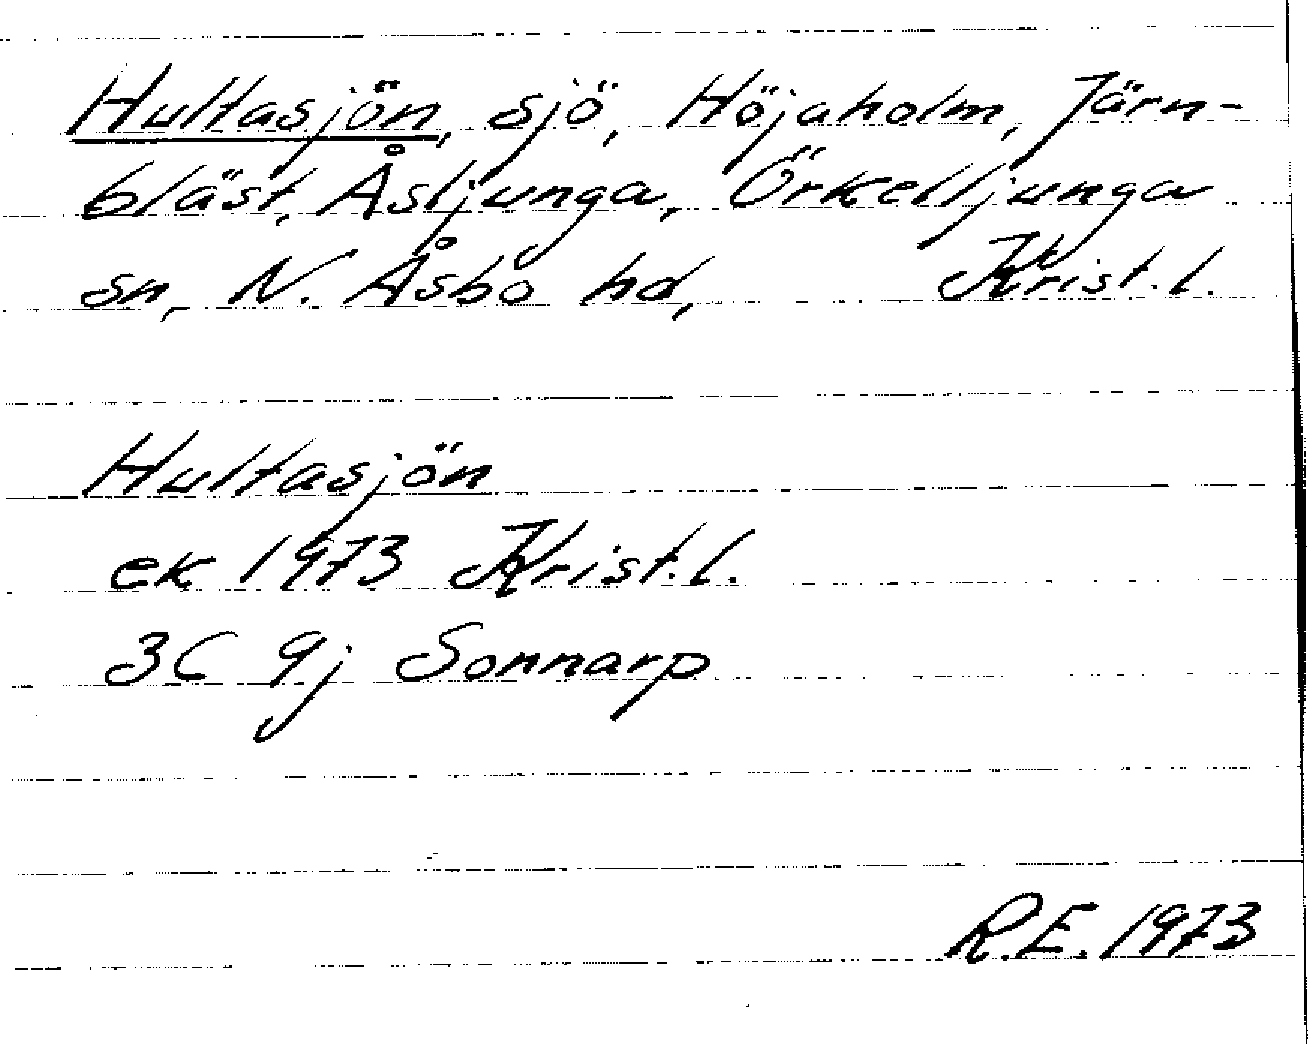 Hultasjön, sjö, Höjaholm, Järn-
bläst, Åsljunga, Örkelljunga
sn, N. Åsbo hd, Krist.l.
Hultasjön
ek 1973 Krist.l.
3C 9j Sonnarp
R.E. 1973